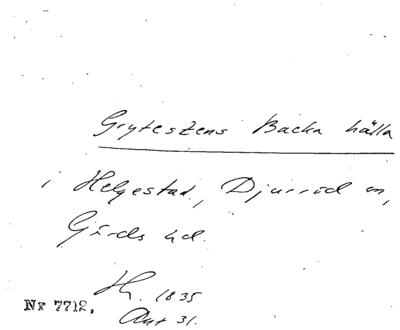 Grytestens Backa källa
i Helgestad, Djurröd sn,
Gärds hd.
1835
Ant 31.
Nr 7712.